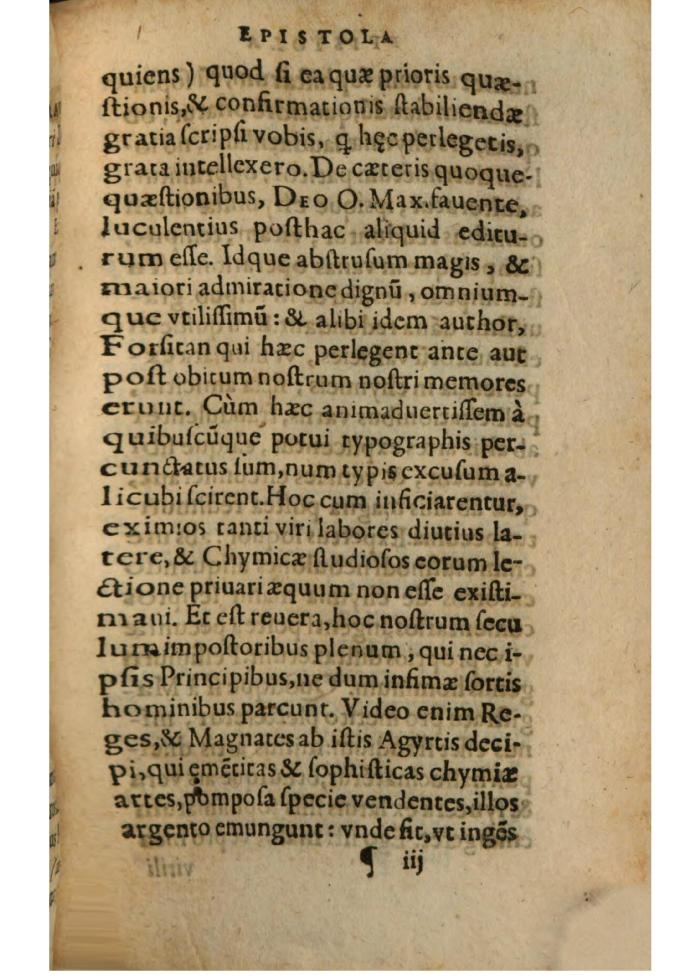 EPISTOLA
quiens) quod si ea quæ prioris quæ-
stionis,& confirmationis stabiliendæ
gratia scripsi vobis, q̃ hęc perlegetis,
grata intellexero. De cæteris quoque
quæstionibus, DEO O. Max. fauente,
luculentius posthac aliquid editu-
rum esse. Idque abstrusum magis, &
maiori admiratione dignũ, omnium-
que vtilissimũ: & alibi idem author,
Forsitan qui hæc perlegent ante aut
post obitum nostrum nostri memores
erunt. Cùm hæc animaduertissem à
quibuscũque potui typographis per-
cunctatus sum, num typis excusum a-
licubi scirent. Hoc cum inficiarentur,
eximios tanti viri labores diutius la-
tere,& Chymicæ studiosos eorum le-
ctione priuari æquum non esse existi-
maui. Et est reuera, hoc nostrum secu
lum impostoribus plenum, qui nec i-
psis Principibus, ne dum infimæ sortis
hominibus parcunt. Video enim Re-
ges,& Magnates ab istis Agyrtis deci-
pi, qui ęmẽtitas & sophisticas chymiæ
artes, pomposa specie vendentes, illos
argento emungunt: vnde fit, vt ingẽs
¶ iij